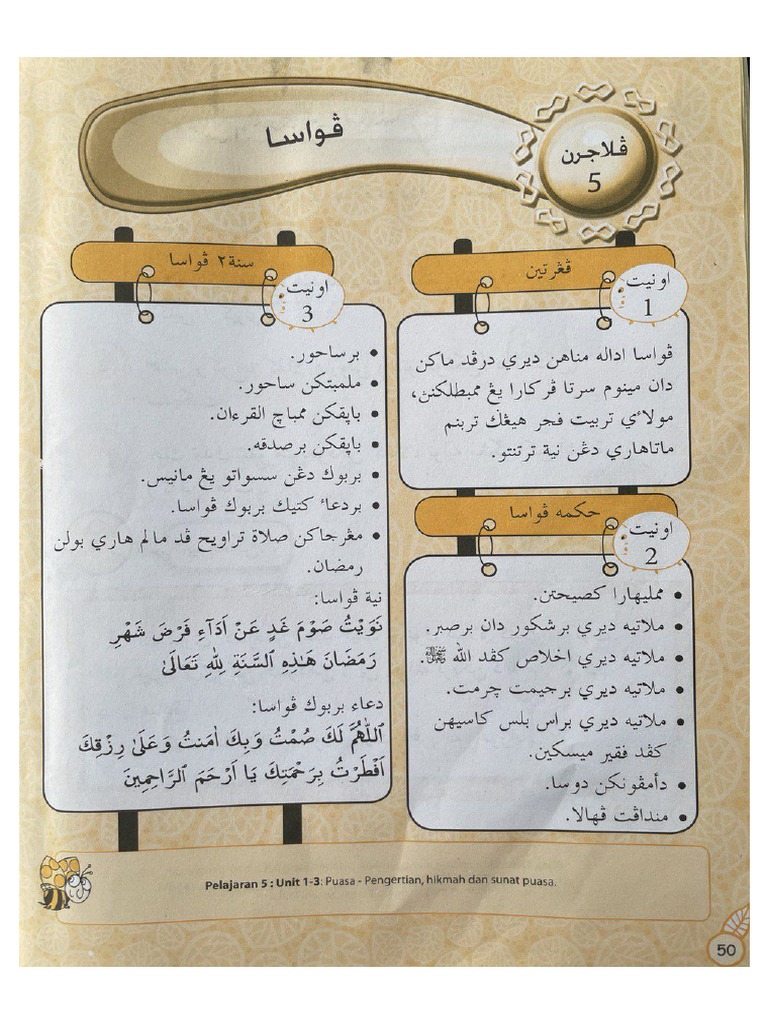 ڤلاجرن
5
ڤواسا
اونيت
1
ڤڠرتين
ڤواسا اداله مناهن ديري درڤد ماكن
دان مينوم سرتا ڤركارا يڠ ممبطلكنڽ،
مولاءي تربيت فجر هيڠݢ تربنم
ماتاهاري دڠن نية ترتنتو.
اونيت
2
حكمه ڤواسا
• مميليهارا كصيحتن.
• ملاتيه ديري برشكور دان برصبر.
• ملاتيه ديري اخلاص كڤد الله ﷻ.
• ملاتيه ديري برجيمت چرمت.
• ملاتيه ديري براس بلس كاسيهن
كڤد فقير ميسكين.
• دأمڤونكن دوسا.
• منداڤت ڤهالا.
اونيت
3
سنة٢ ڤواسا
• برساحور.
• ملمبتكن ساحور.
• باڽقكن ممباچ القرءان.
• باڽقكن برصدقه.
• بربوك دڠن سسواتو يڠ مانيس.
• بردعاء كتيك بربوك ڤواسا.
• مڠرجاكن صلاة تراويح ڤد مالم هاري بولن
رمضان.
نية ڤواسا:
نَوَيْتُ صَوْمَ غَدٍ عَنْ أَدَآءِ فَرْضَ شَهْرِ
رَمَضَانَ هَـٰذِهِ ٱلسَّنَةِ لِلَّٰهِ تَعَالَىٰ
دعاء بربوك ڤواسا:
ٱللَّٰهُمَّ لَكَ صُمْتُ وَبِكَ اٰمَنتُ وَعَلَىٰ رِزْقِكَ
اَفْطَرْتُ بِرَحْمَتِكَ يَا اَرْحَمَ ٱلرَّاحِمِينَ
Pelajaran 5 : Unit 1-3: Puasa - Pengertian, hikmah dan sunat puasa.
50